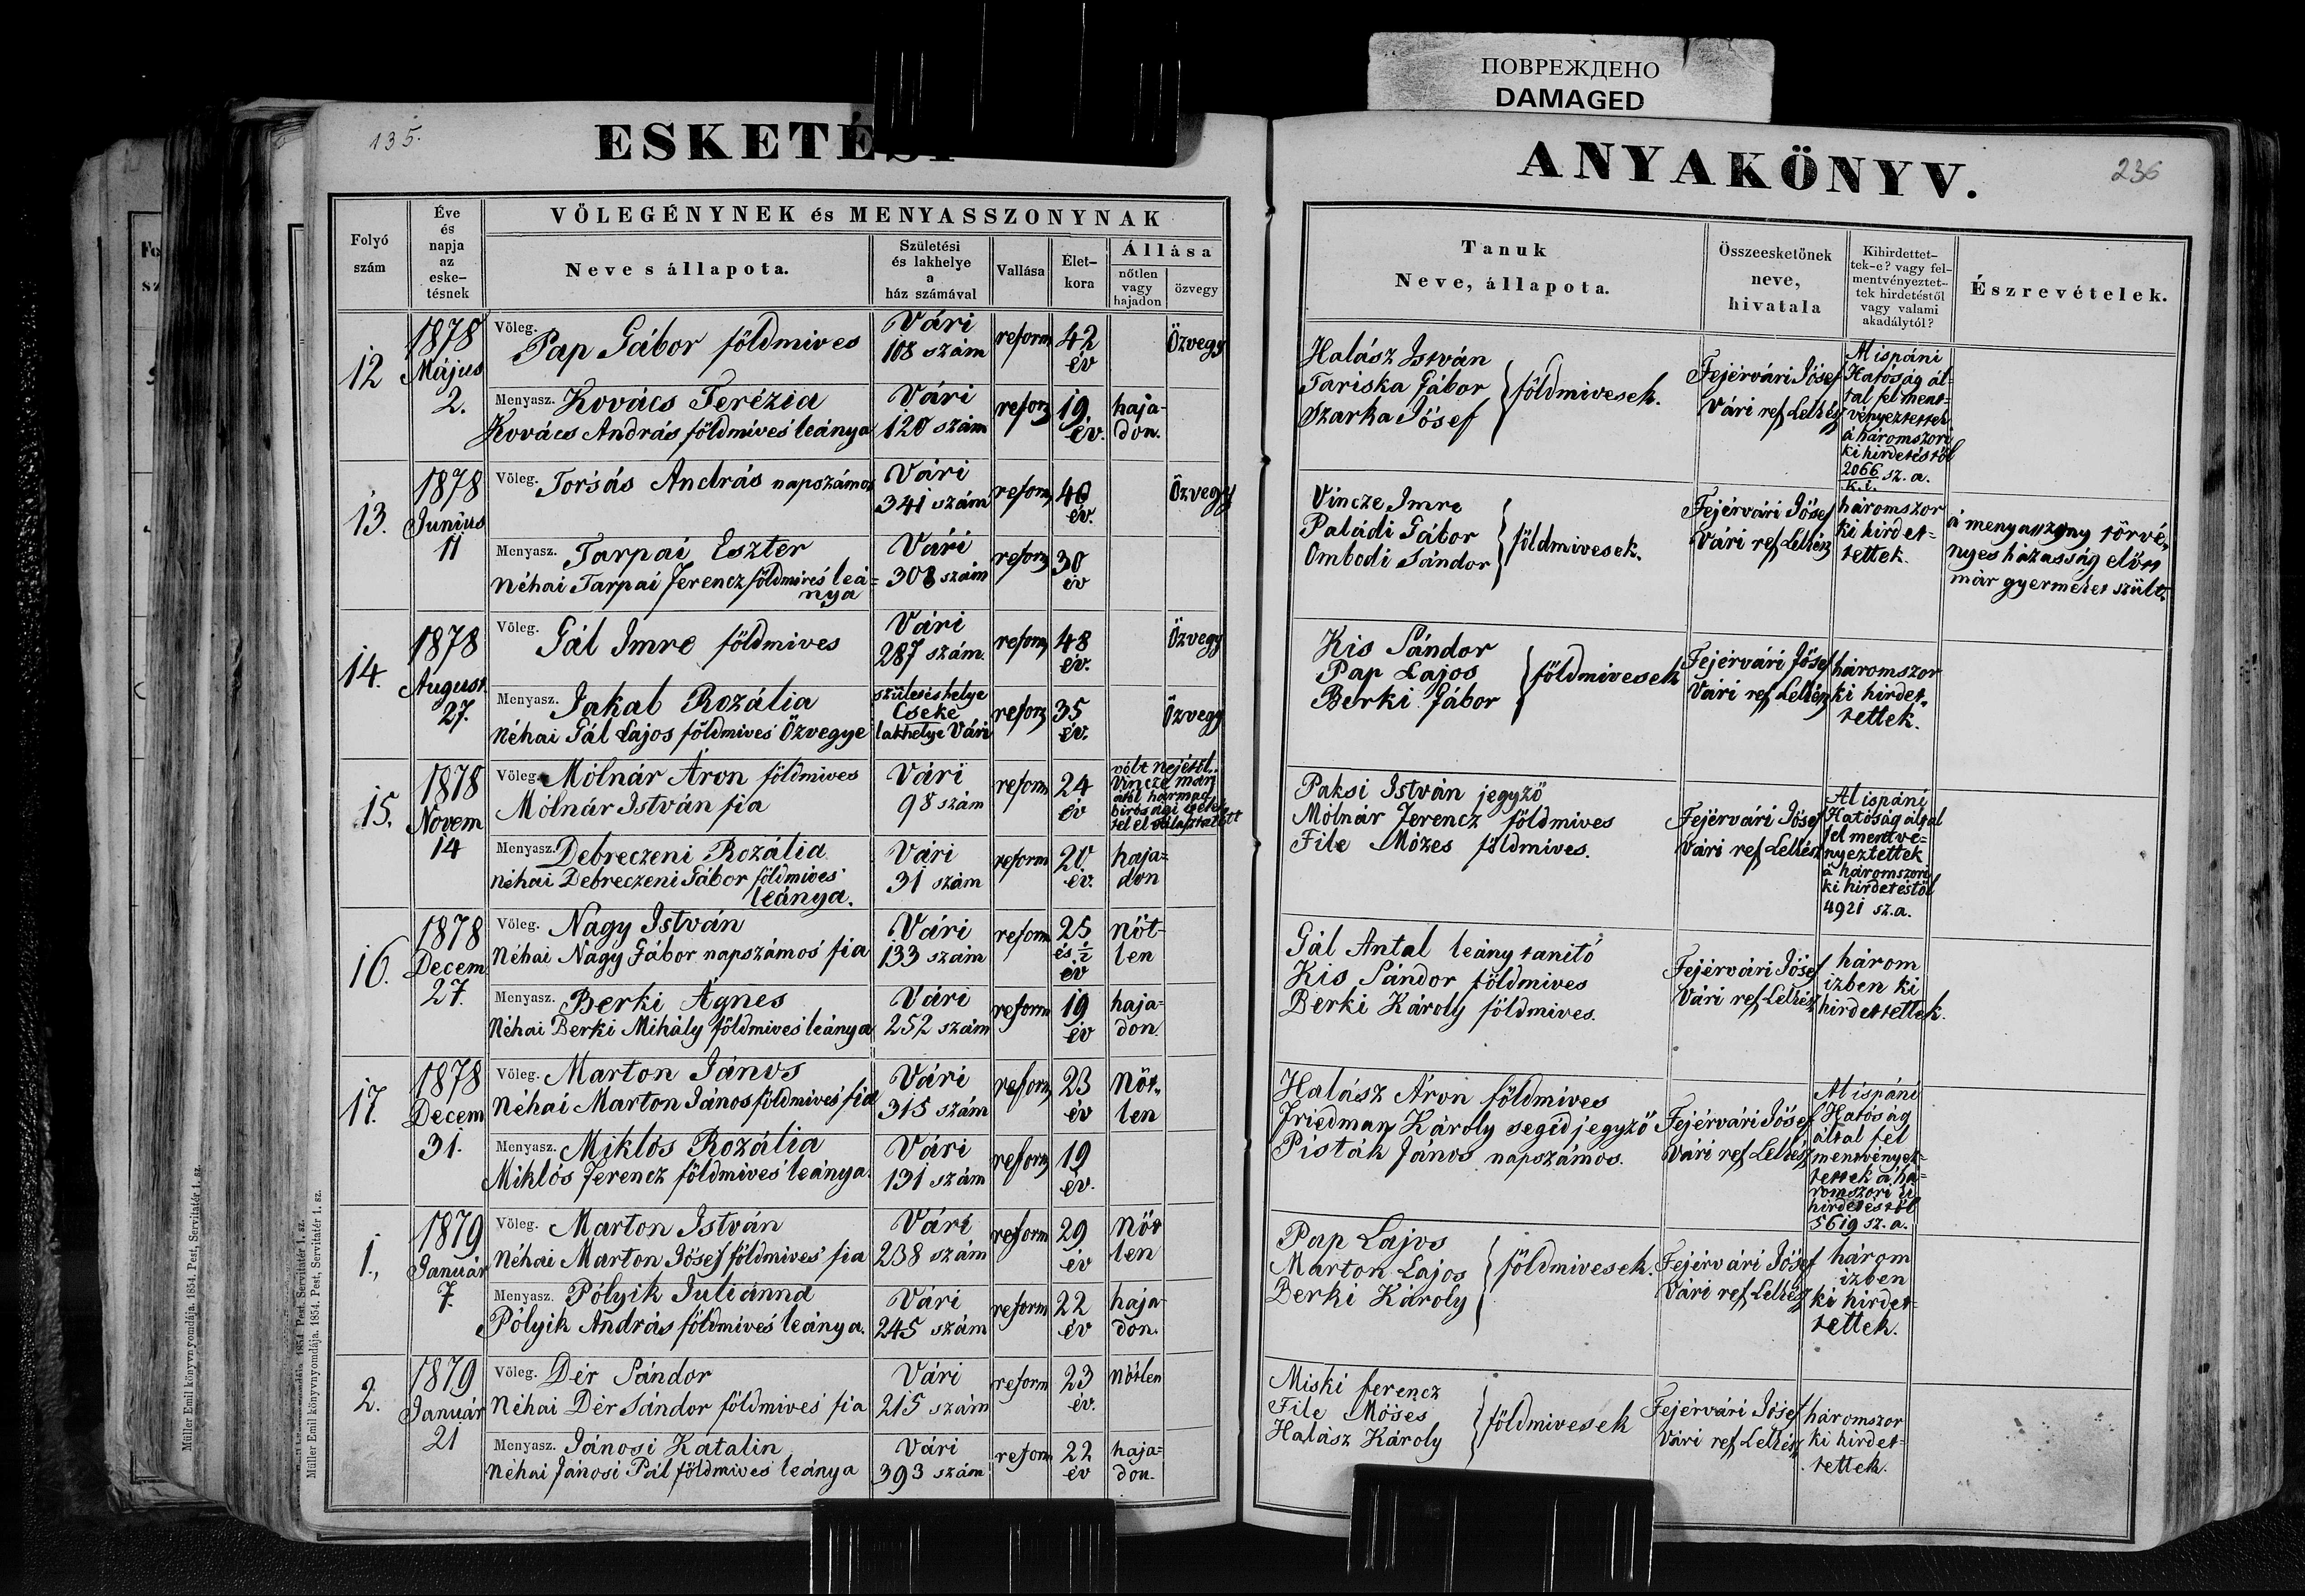 ПОВРЕЖДЕНО
DAMAGED
135.
ESKETÉSI
ANYAKÖNYV.
236
Folyó
szám
Éve
és
napja
az
eske-
tésnek
VŐLEGÉNYNEK és MENYASSZONYNAK
Neve s állapota.
Születési
és lakhelye
a
ház számával
Vallása
Élet-
kora
Állása
nőtlen
vagy
hajadon
özvegy
Tanuk
Neve, állapota.
Összeesketőnek
neve,
hivatala
Kihirdettet-
tek-e? vagy fel-
mentvényeztet-
tek hirdetéstől
vagy valami
akadálytól?
Észrevételek.
12
1878
Május
2.
Völeg.
Pap Gábor földmives
Vári
108 szám
reform
42
év
Özvegy
Menyasz. Kovács Terézia
Kovács András földmives leánya
Vári
120 szám
reform
19.
év.
haja-
don.
Halász István
Tariska Gábor
Szarka Jósef
földmivesek.
Fejérvári Jósef
Vári ref Lelkész
Alispáni
Hatóság ál-
tal felment=
vényeztettek
á háromszori
kihirdetéstől
2066 sz. a.
k.i.
13.
1878
Junius
11
Völeg. Torsás András napszámos
Vári
341 szám
reform
40
év.
Özvegy
Menyasz. Tarpai Eszter
Néhai Tarpai Ferencz földmives leá=
nya
Vári
308 szám
reform
30
év
Vincze Imre
Paládi Gábor
Ombodi Sándor
földmivesek.
Fejérvári Jósef
Vári ref Lelkész
háromszor
ki hirdet=
tettek.
á menyasszony törvé-
nyes házasság előtt
már gyermeket szült.
14.
1878
August.
27.
Völeg.
Gál Imre földmives
Vári
287 szám.
reform
48
év.
Özvegy
Menyasz. Jakab Rozália
Néhai Gál Lajos földmives Özvegye
születéshelye
Cseke
lakhelye Vári
reform
35
év.
Özvegy
Kis Sándor
Pap Lajos
Berki Gábor
földmivesek
Fejérvári Jósef
Vári ref Lelkész
háromszor
ki hirdet-
tettek.
15.
1878
Novem
14
Völeg. Mólnár Áron földmives
Mólnár István fia
Vári
98 szám
reform
24
év
vólt nejétől
Vincze
Menyasz. Debreczeni Rozália
Néhai Debreczeni Gábor földmives
leánya.
Vári
31 szám
reform
20
év.
haja=
don
Paksi István jegyző
Mólnár Ferencz földmives
File Mózes földmives.
Fejérvári Jósef
Vári ref Lelkész
Alispáni
Hatóság által
fel mentvé=
nyeztettek
á háromszori
ki hirdetéstől
4921 sz.a.
16.
1878
Decem
27.
Völeg. Nagy István
Néhai Nagy Gábor napszámos fia
Vári
133 szám
reform
25
és ½
év
nőt-
len
Menyasz. Berki Ágnes
Néhai Berki Mihály földmives leánya
Vári
252 szám
reform
19
év
haja=
don.
Gál Antal leánytanitó
Kis Sándor földmives
Berki Károly földmives.
Fejérvári Jósef
Vári ref Lelkész
három
izben ki
hirdettettek.
17.
1878
Decem
31.
Völeg. Marton János
Néhai Marton János földmives fia
Vári
315 szám
reform
23
év
Nőt-
len
Menyasz. Miklós Rozália
Miklós Ferencz földmives leánya.
Vári
131 szám
reform
19
év.
Halász Áron földmives
Friedman Károly segédjegyző
Pisták János napszámos.
Fejérvári Jósef
Vári ref Lelkész
Alispáni
Hatóság
által fel
mentvényez-
tettek á há-
romszori ki
hirdetéstől
5619 sz. a.
1.,
1879
Január
7.
Völeg. Marton István
Néhai Marton Jósef földmives fia
Vári
238 szám
reform
29
év
Nőt
len
Menyasz. Pólyik Juliánna
Pólyik András földmives leánya.
Vári
245 szám
reform
22
év
haja-
don.
Pap Lajos
Marton Lajos
Berki Károly
földmivesek.
Fejérvári Jósef
Vári ref Lelkész
három
izben
ki hirdet-
tettek.
2.
1879
Január
21
Völeg. Dér Sándor
Néhai Dér Sándor földmives fia
Vári
215 szám
reform
23
év.
nőtlen
Menyasz. Jánosi Katalin
Néhai Jánosi Pál földmives leánya
Vári
393 szám
reform
22
év
haja=
don.
Miski ferencz
File Móses
Halász Károly
földmivesek
Fejérvári Jósef
Vári ref Lelkész
háromszor
ki hirdet-
tettek.
Müller Emil könyvnyomdája. 1854. Pest, Servitatér 1. sz.
Müller Emil könyvnyomdája. 1854. Pest, Servitatér 1. sz.